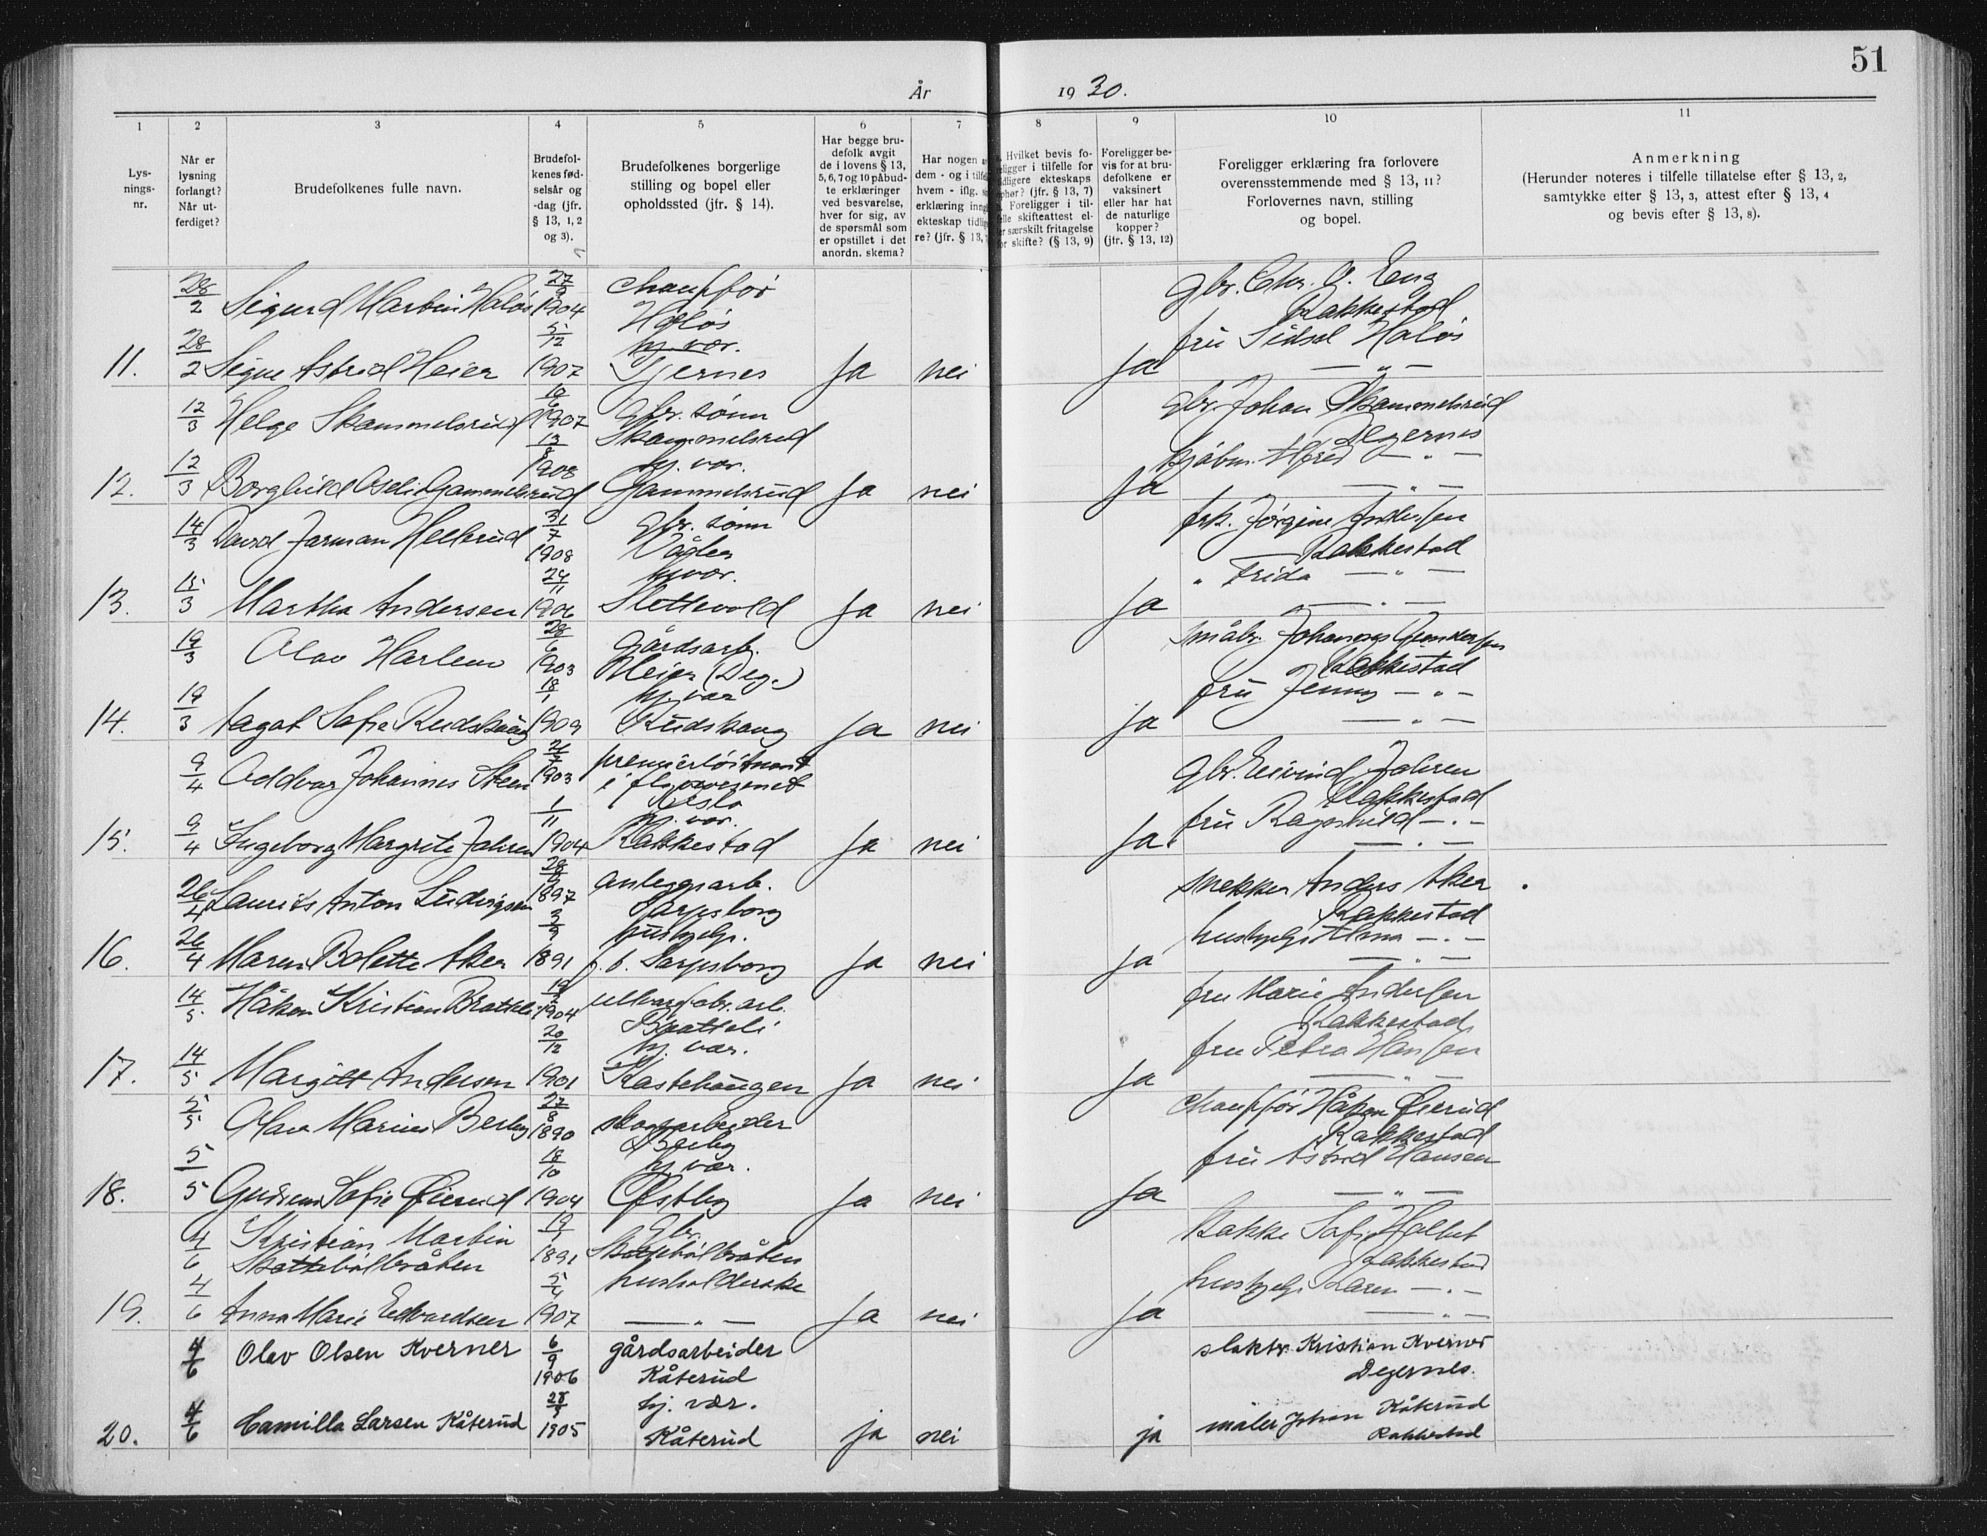 51
År 1930.
1 2 3 4 5 6 7 8 9 10 11
Lys-
nings-
nr.
Når er
lysning
forlangt?
Når ut-
ferdiget?
Brudefolkenes fulle navn.
Brudefol-
kenes fød-
selsår og
-dag (jfr.
§ 13, 1, 2
og 3).
Brudefolkenes borgerlige
stilling og bopel eller
opholdssted (jfr. § 14).
Har begge bru-
defolk avgit
de i lovens § 13,
5, 6, 7 og 10 påbud-
te erklæringer
ved besvarelse,
hver for sig, av
de spørsmål som
er opstillet i det
anordn. skema?
Har nogen
dem - og i
hvem - iflg.
erklæring
ekteskap
re? (jfr. § 13,
Hvilket bevis fo-
i tilfelle for
ekteskaps
(jfr. § 13, 7)
Foreligger i til-
skifteattest el-
særskilt fritagelse
skifte? (§ 13, 9)
Foreligger be-
vis for at bru-
defolkene er
vaksinert
eller har hat
de naturlige
kopper?
(jfr. § 13, 12)
Foreligger erklæring fra forlovere
overensstemmende med § 13, 11?
Forlovernes navn, stilling
og bopel.
Anmerkning
(Herunder noteres i tilfelle tillatelse efter § 13, 2,
samtykke efter § 13, 3, attest efter § 13, 4
og bevis efter § 13, 8).
28/2 Sigurd Martin Haløs 27/9 1904 chauffør Haløs gbr. Chr. A. Eng Rakkestad
11. 28/2 Signe Astrid Heier 5/12 1907 hj. vær. Tjernes Ja nei Ja fru Sidsel Haløs — „ —
12/3 Helge Skammelsrud 1907 gbr. sønn Skammelsrud gbr. Johan Skammelsrud Degernes
12. 12/3 Borghild Oseli Gammelsrud 1908 hj. vær. Gammelsrud Ja nei Ja kjøbm. Alfred — „ —
14/3 David Jarman Hellerud 31/7 1908 gbr. sønn frk. Jørgine Andersen Rakkestad
13. 15/3 Martha Andersen 24/11 1906 hj. vær. Slettevold Ja nei Ja „ Frida — „ —
19/3 Olav Harlem 28/6 1903 gårdsarb. Heier (Deg.) småbr. Johannes Gundersen Rakkestad
14. 19/3 Agot Sofie Rudskaug 18/1 1909 hj. vær Rudskaug Ja nei Ja fru Jenny — „ —
9/4 Oddvar Johannes Steen 1903 premierløitnant i flyvevesenet Oslo gbr. Eivind Jahren Rakkestad
15. 9/4 Ingeborg Margrete Jahren 1/11 1904 hj. vær. Rakkestad Ja nei Ja fru Ragnhild — „ —
26/4 Laurits Anton Ludvigsen 1897 anleggsarb. Sarpsborg snekker Anders Aker Rakkestad
16. 26/4 Maren Bolette Aker 1891 hushjelp. f. t. Sarpsborg Ja nei Ja hushjelp Alma — „ —
14/5 Håkon Kristian Bratteli 1904 Bratteli fru Marie Andersen Rakkestad
17. 14/5 Margitt Andersen 20/12 1901 hj. vær. Kastehaugen Ja nei Ja fru Petra Hansen — „ —
5/5 Olav Marius Berby 27/8 1890 skogsarbeider Berby chauffør Håkon Øierud Rakkestad
18. 5/5 Gudrun Sofie Øierud 18/10 1904 hj. vær. Østby Ja nei Ja fru Astrid Hansen — „ —
4/6 Kristian Martin Skattebølbråten 1891 gbr. Skattebølbråten Sofie Rakkestad
19. 4/6 Anna Marie Edvardsen 1907 husholderske — „ — Ja nei Ja hushjelp Karen — „ —
4/6 Olav Olsen Kverner 6/9 1906 gårdsarbeider Kåterud slaktr. Kristian Kverner Degernes.
20. 4/6 Camilla Larsen Kåterud 1905 hj. vær. Kåterud ja nei ja maler Johan Kåterud Rakkestad